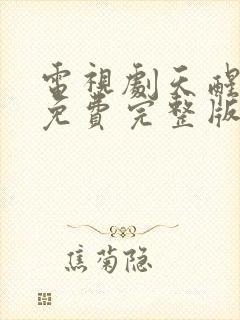 電視劇天醒
免費完整版
焦菊隐